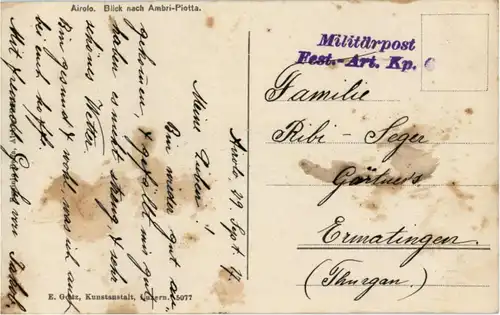 Airolo. Blick nach Ambri-Piotta.
Airolo 29. Sept. 17.
Meine Lieben!
Bin wieder gut an-
gekommen, & gefällt mir gut
haben es nicht streng, & sehr
schönes Wetter.
Bin gesund & wohl, was ich auch
bei euch hoffe.
Mit freundl. Grüße von Jakob.
Militärpost
Fest.-Art. Kp. 6
Familie
Ribi - Seger
Gärtners
Ermatingen.
(Thurgau.)
E. Goetz, Kunstanstalt, Luzern. 5077